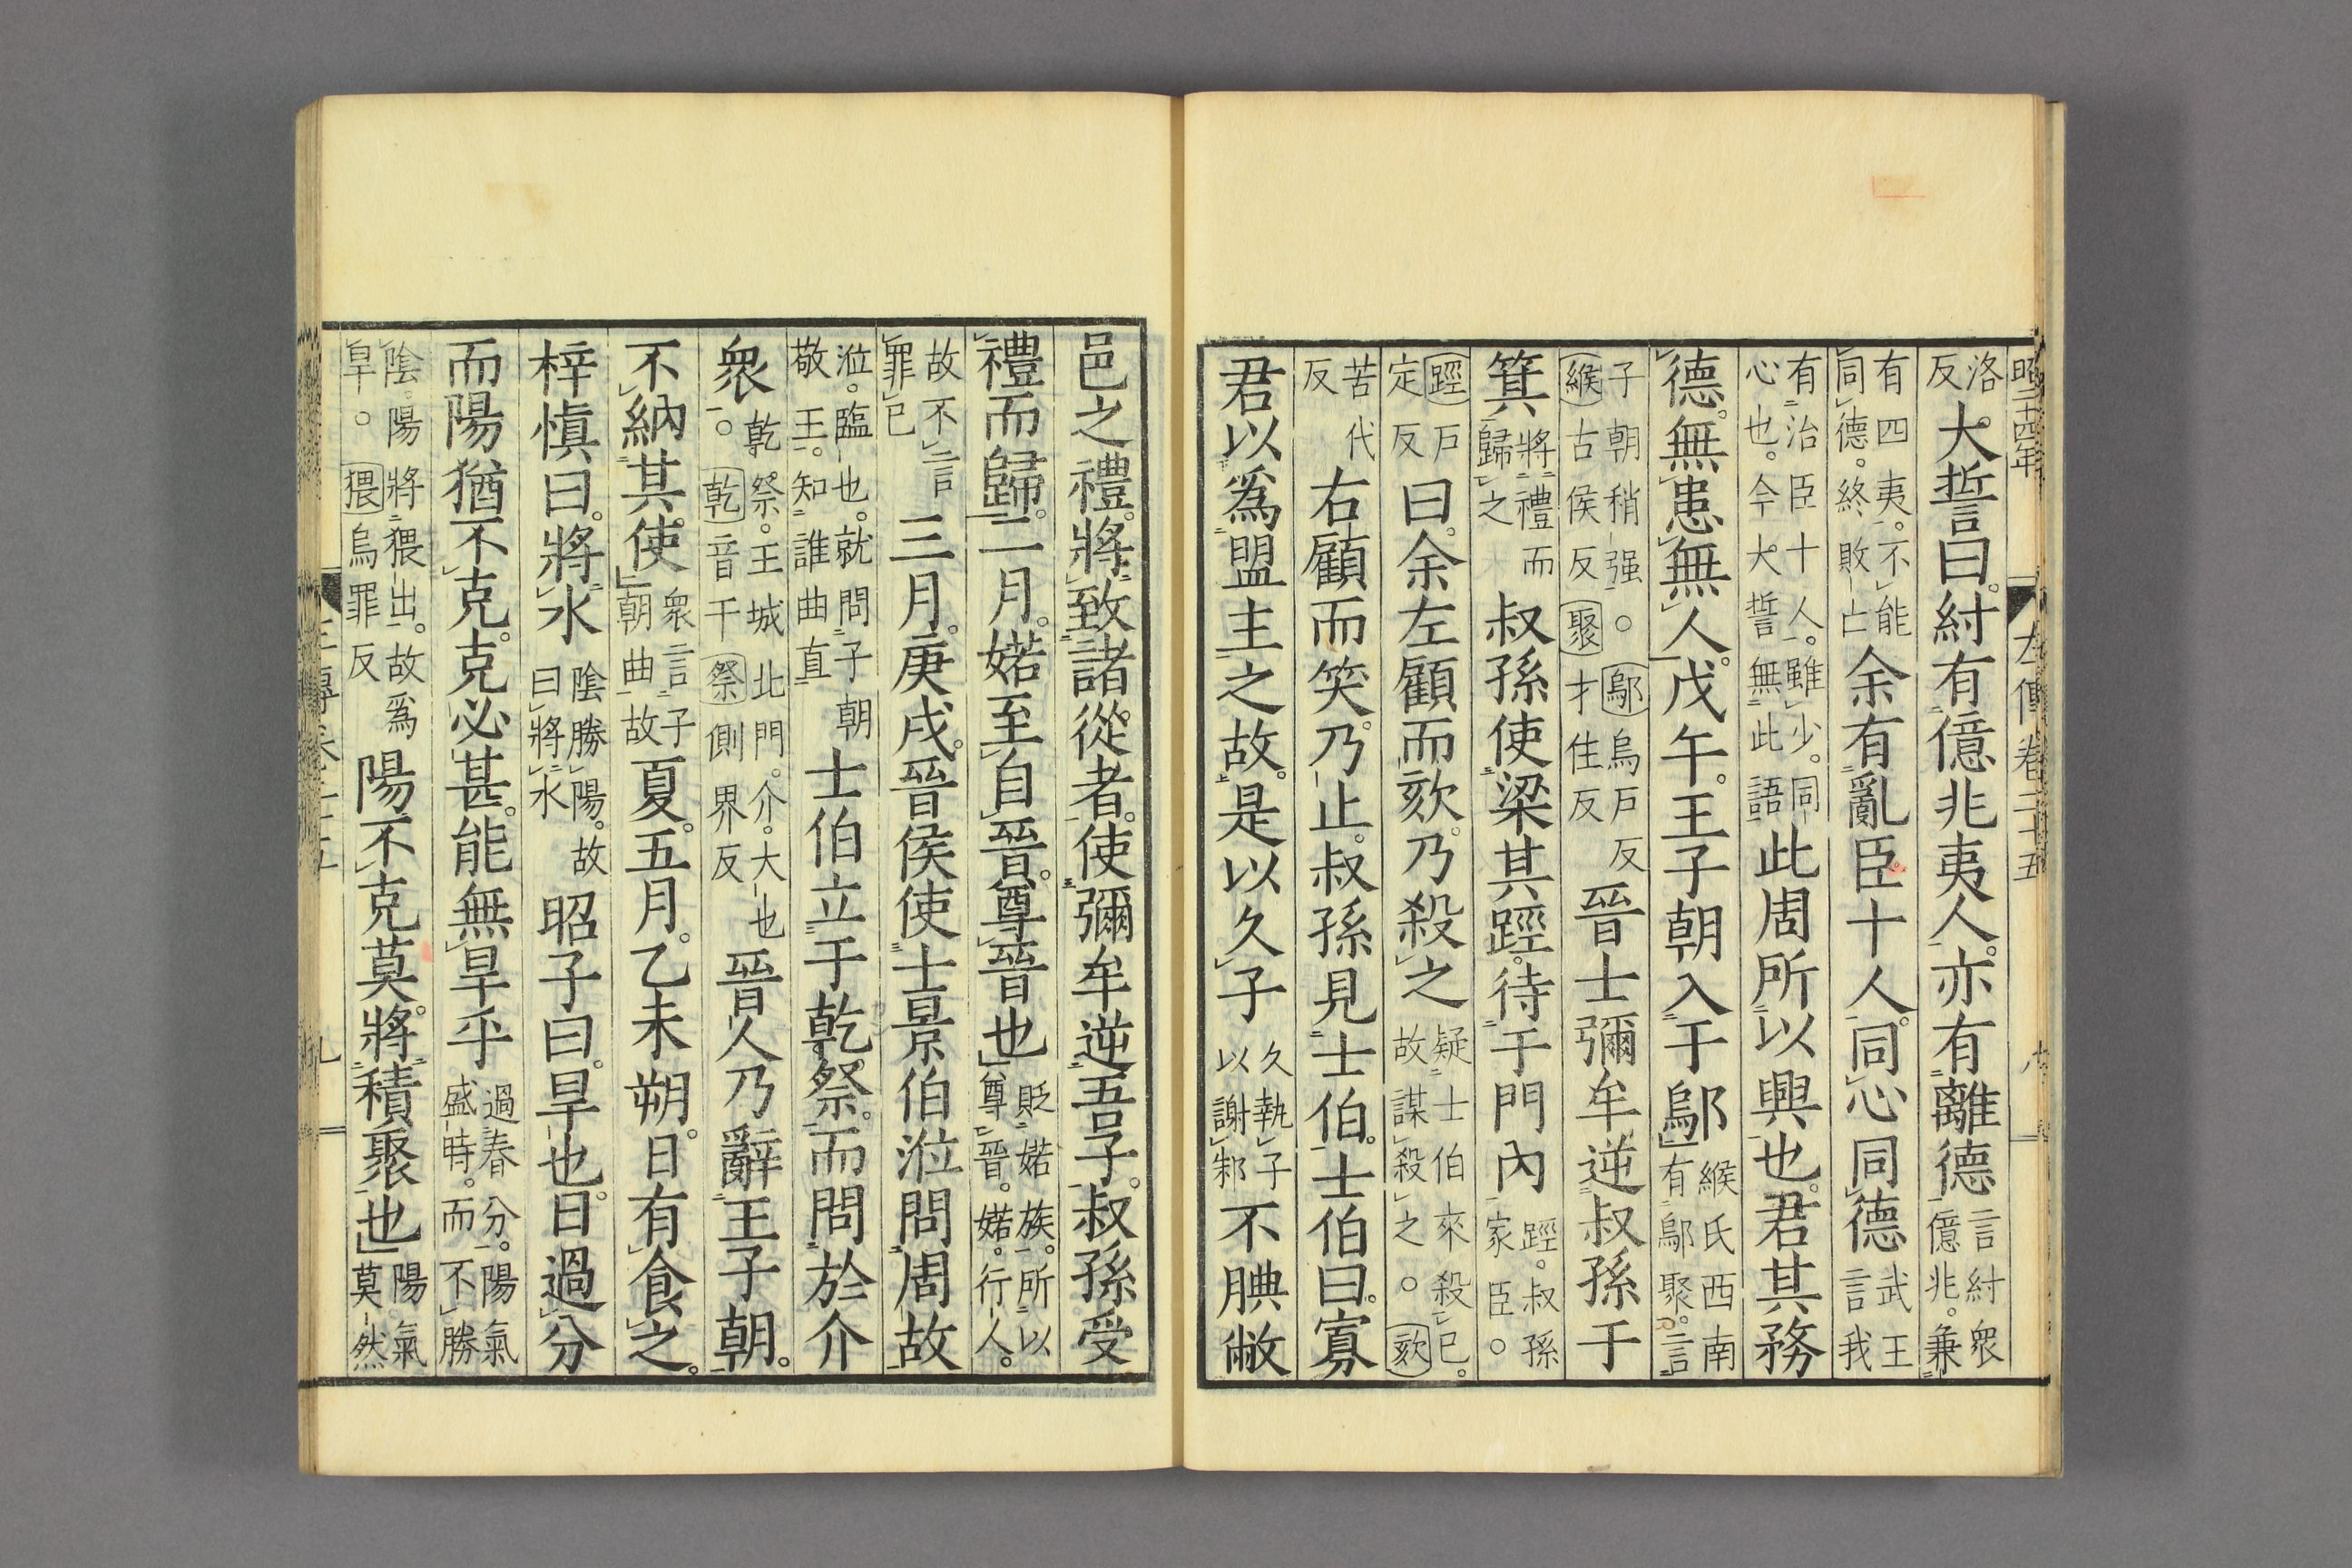 昭二十四年
左傳卷二十五
洛反大誓曰。紂有億兆夷人。亦有離德言紂衆億兆。兼
有四夷。不能同德。終敗亡余有亂臣十人。同心同德言武王我
有治臣十人。雖少。同心也。今大誓無此語此周所以興也。君其務
德。無患無人。戊午。王子朝入于鄔緱氏西南有鄔聚。言
子朝稍强。鄔烏戸反緱古侯反聚才住反晉士彌牟逆叔孫于
箕將禮而歸之叔孫使梁其踁。待于門內踁。叔孫家臣。
踁戸定反曰。余左顧而欬。乃殺之疑士伯來殺已。故謀殺之。欬
苦代反右顧而笑。乃止。叔孫見士伯。士伯曰。寡
君以爲盟主之故。是以久子久執子以謝邾不腆敝
邑之禮。將致諸從者。使彌牟逆吾子。叔孫受
禮而歸。二月。婼至自晉。尊晉也貶婼族。所以尊晉。婼。行人。
故不言罪已三月。庚戌。晉侯使士景伯涖問周故
涖。臨也。就問子朝敬王。知誰曲直士伯立于乾祭。而問於介
衆。乾祭。王城北門。介。大也乾音干祭側界反晉人乃辭王子朝。
不納其使衆言子朝曲故夏。五月。乙未朔。日有食之。
梓愼曰。將水陰勝陽。故曰將水昭子曰。旱也。日過分
而陽猶不克。克必甚。能無旱乎過春分。陽氣盛時。而不勝
陰。陽將猥出。故爲旱。猥烏罪反陽不克莫。將積聚也陽氣莫然
九